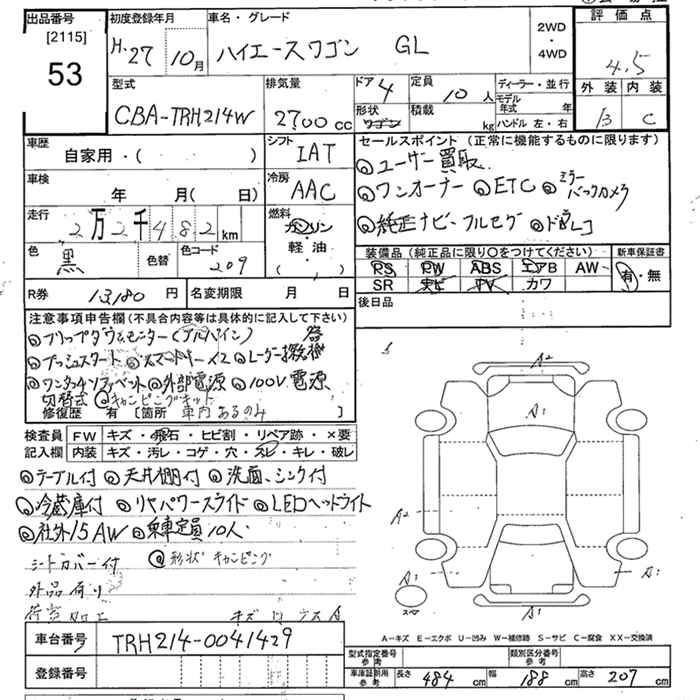 出品番号 [2115] 53
初度登録年月 H.27 10月
車名・グレード ハイエースワゴン GL
2WD ・ 4WD
評価点 4.5
外装 内装
B C
型式 CBA-TRH214W
排気量 2700 cc
ドア 4
定員 10人
形状 ワゴン
積載 kg
ディーラー・並行
モデル年式 年
ハンドル 左・右
車歴 自家用・( )
シフト IAT
セールスポイント (正常に機能するものに限ります)
◎ユーザー買取
◎ワンオーナー ◎ETC ◎ミラーバックカメラ
◎純正ナビ・フルセグ ◎ドラレコ
車検 年 月( 日)
冷房 AAC
走行 2万2千482km
燃料 ガソリン・軽油・( )
色 黒
色替
色コード 209
装備品 (純正品に限り○をつけてください)
PS PW ABS エアB AW
SR ナビ TV カワ
新車保証書 有・無
R券 13,180円
名変期限 月 日
後日品
注意事項申告欄(不具合内容等は具体的に記入して下さい)
◎フリップダウンモニター(アルパイン)
◎プッシュスタート ◎スマートキー×2 ◎レーダー探知機
◎外部電源 ◎100V電源
切替式 ◎キャンピングキット
修復歴 有 [箇所 車内あるのみ ]
検査員記入欄
FW キズ・飛石・ヒビ割・リペア跡・×要
内装 キズ・汚レ・コゲ・穴・スレ・キレ・破レ
◎テーブル付 ◎天井棚付 ◎洗面、シンク付
◎冷蔵庫付 ◎リヤパワースライド ◎LEDヘッドライト
◎社外15AW ◎乗車定員10人
シートカバー付 ◎形状キャンピング
外品有り
荷室 加工 キズ
A2
A1
A2
A1 A1
A1
スペア
A-キズ E-エクボ U-凹み W-補修跡 S-サビ C-腐食 XX-交換済
車台番号 TRH214-0041429
登録番号
型式指定番号参考
類別区分番号参考
車庫証明用参考 長さ 484 cm 幅 188 cm 高さ 207 cm